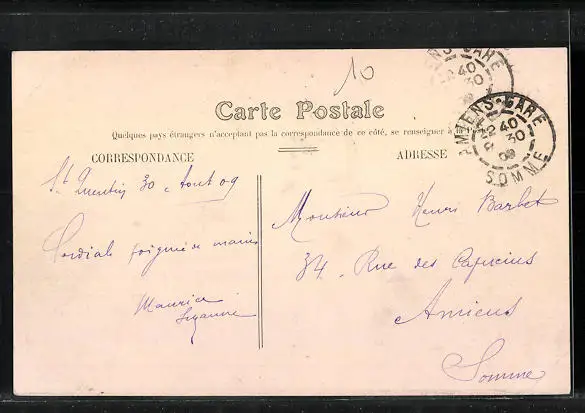 10
Carte Postale
Quelques pays étrangers n'acceptant pas la correspondance de ce côté, se renseigner à la Poste
CORRESPONDANCE
ADRESSE
St Quentin 30 Aout 09
Cordiale poignée de mains
Maurice
Suzanne
Monsieur Henri Barbet
34. Rue des Capucins
Amiens
Somme
AMIENS-GARE
40
30
SOMME